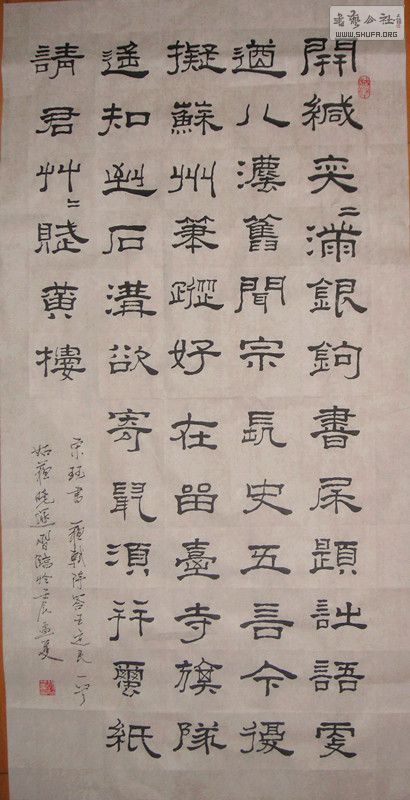 書藝公社
WWW.SHUFA.ORG
開緘奕〻滿銀鉤書尾題詩語更
遒八灋舊聞宗長史五言今復
擬蘇州筆蹤好在留臺寺旗隊
遙知到石溝欲寄鼠須并繭紙
請君艸〻賦黃樓
宋珏書 蘇軾詩答王定民一首
姑蘇曉 臨於壬辰孟夏